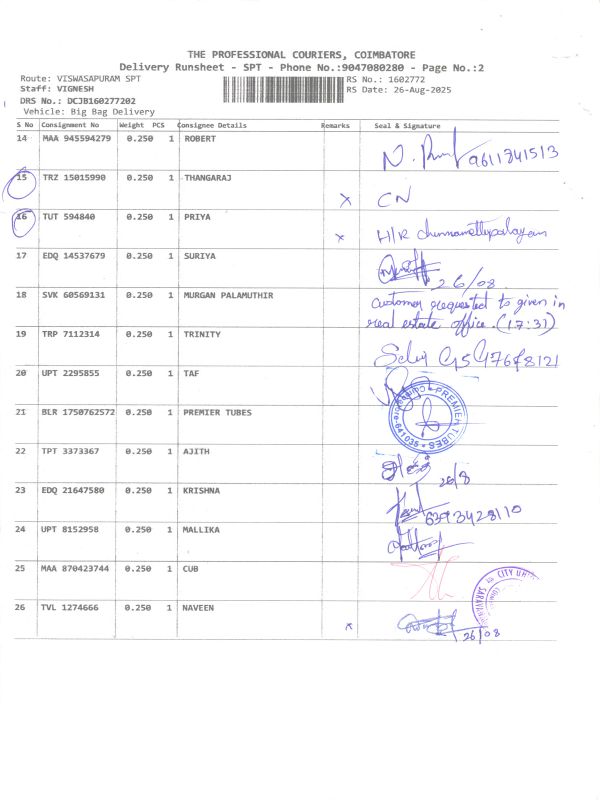 THE PROFESSIONAL COURIERS, COIMBATORE
Delivery Runsheet - SPT - Phone No.:9047080280 - Page No.:2
Route: VISWASAPURAM SPT RS No.: 1602772
Staff: VIGNESH RS Date: 26-Aug-2025
DRS No.: DCJB160277202
Vehicle: Big Bag Delivery
S No Consignment No Weight PCS Consignee Details Remarks Seal & Signature
14 MAA 945594279 0.250 1 ROBERT
15 TRZ 15015990 0.250 1 THANGARAJ x CN
16 TUT 594840 0.250 1 PRIYA x H/R
17 EDQ 14537679 0.250 1 SURIYA 26/08
18 SVK 60569131 0.250 1 MURGAN PALAMUTHIR customer requested to given in
real estate office. (17:31)
19 TRP 7112314 0.250 1 TRINITY
20 UPT 2295855 0.250 1 TAF
21 BLR 1750762572 0.250 1 PREMIER TUBES PREMIER TUBES
22 TPT 3373367 0.250 1 AJITH 26/8
23 EDQ 21647580 0.250 1 KRISHNA
24 UPT 8152958 0.250 1 MALLIKA
25 MAA 870423744 0.250 1 CUB
26 TVL 1274666 0.250 1 NAVEEN x 26/08